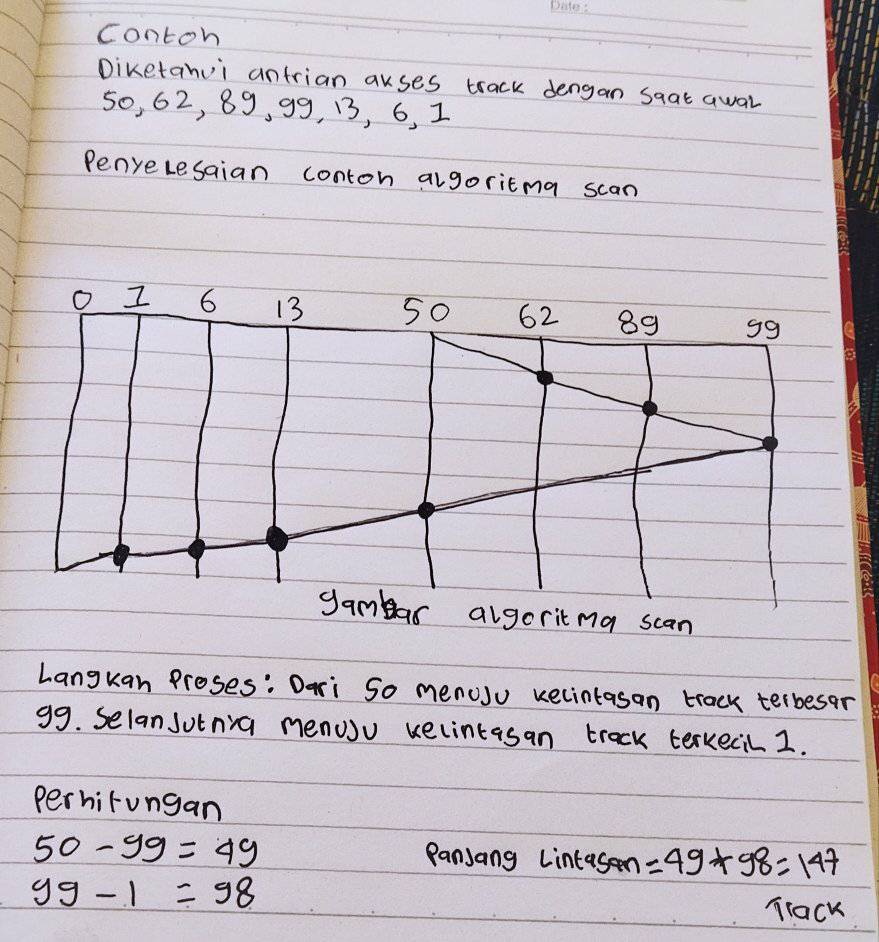 Date:
Contoh
Diketahui antrian akses track dengan saat awal
50, 62, 89, 99, 13, 6, 1
Penyelesaian contoh algoritma scan
0 1 6 13 50 62 89 99
gambar algoritma scan
Langkah Proses: Dari 50 menuju kelintasan track terbesar
99. Selanjutnya menuju kelintasan track terkecil 1.
Perhitungan
50 - 99 = 49
Panjang Lintasan = 49 + 98 = 147
99 - 1 = 98
Track